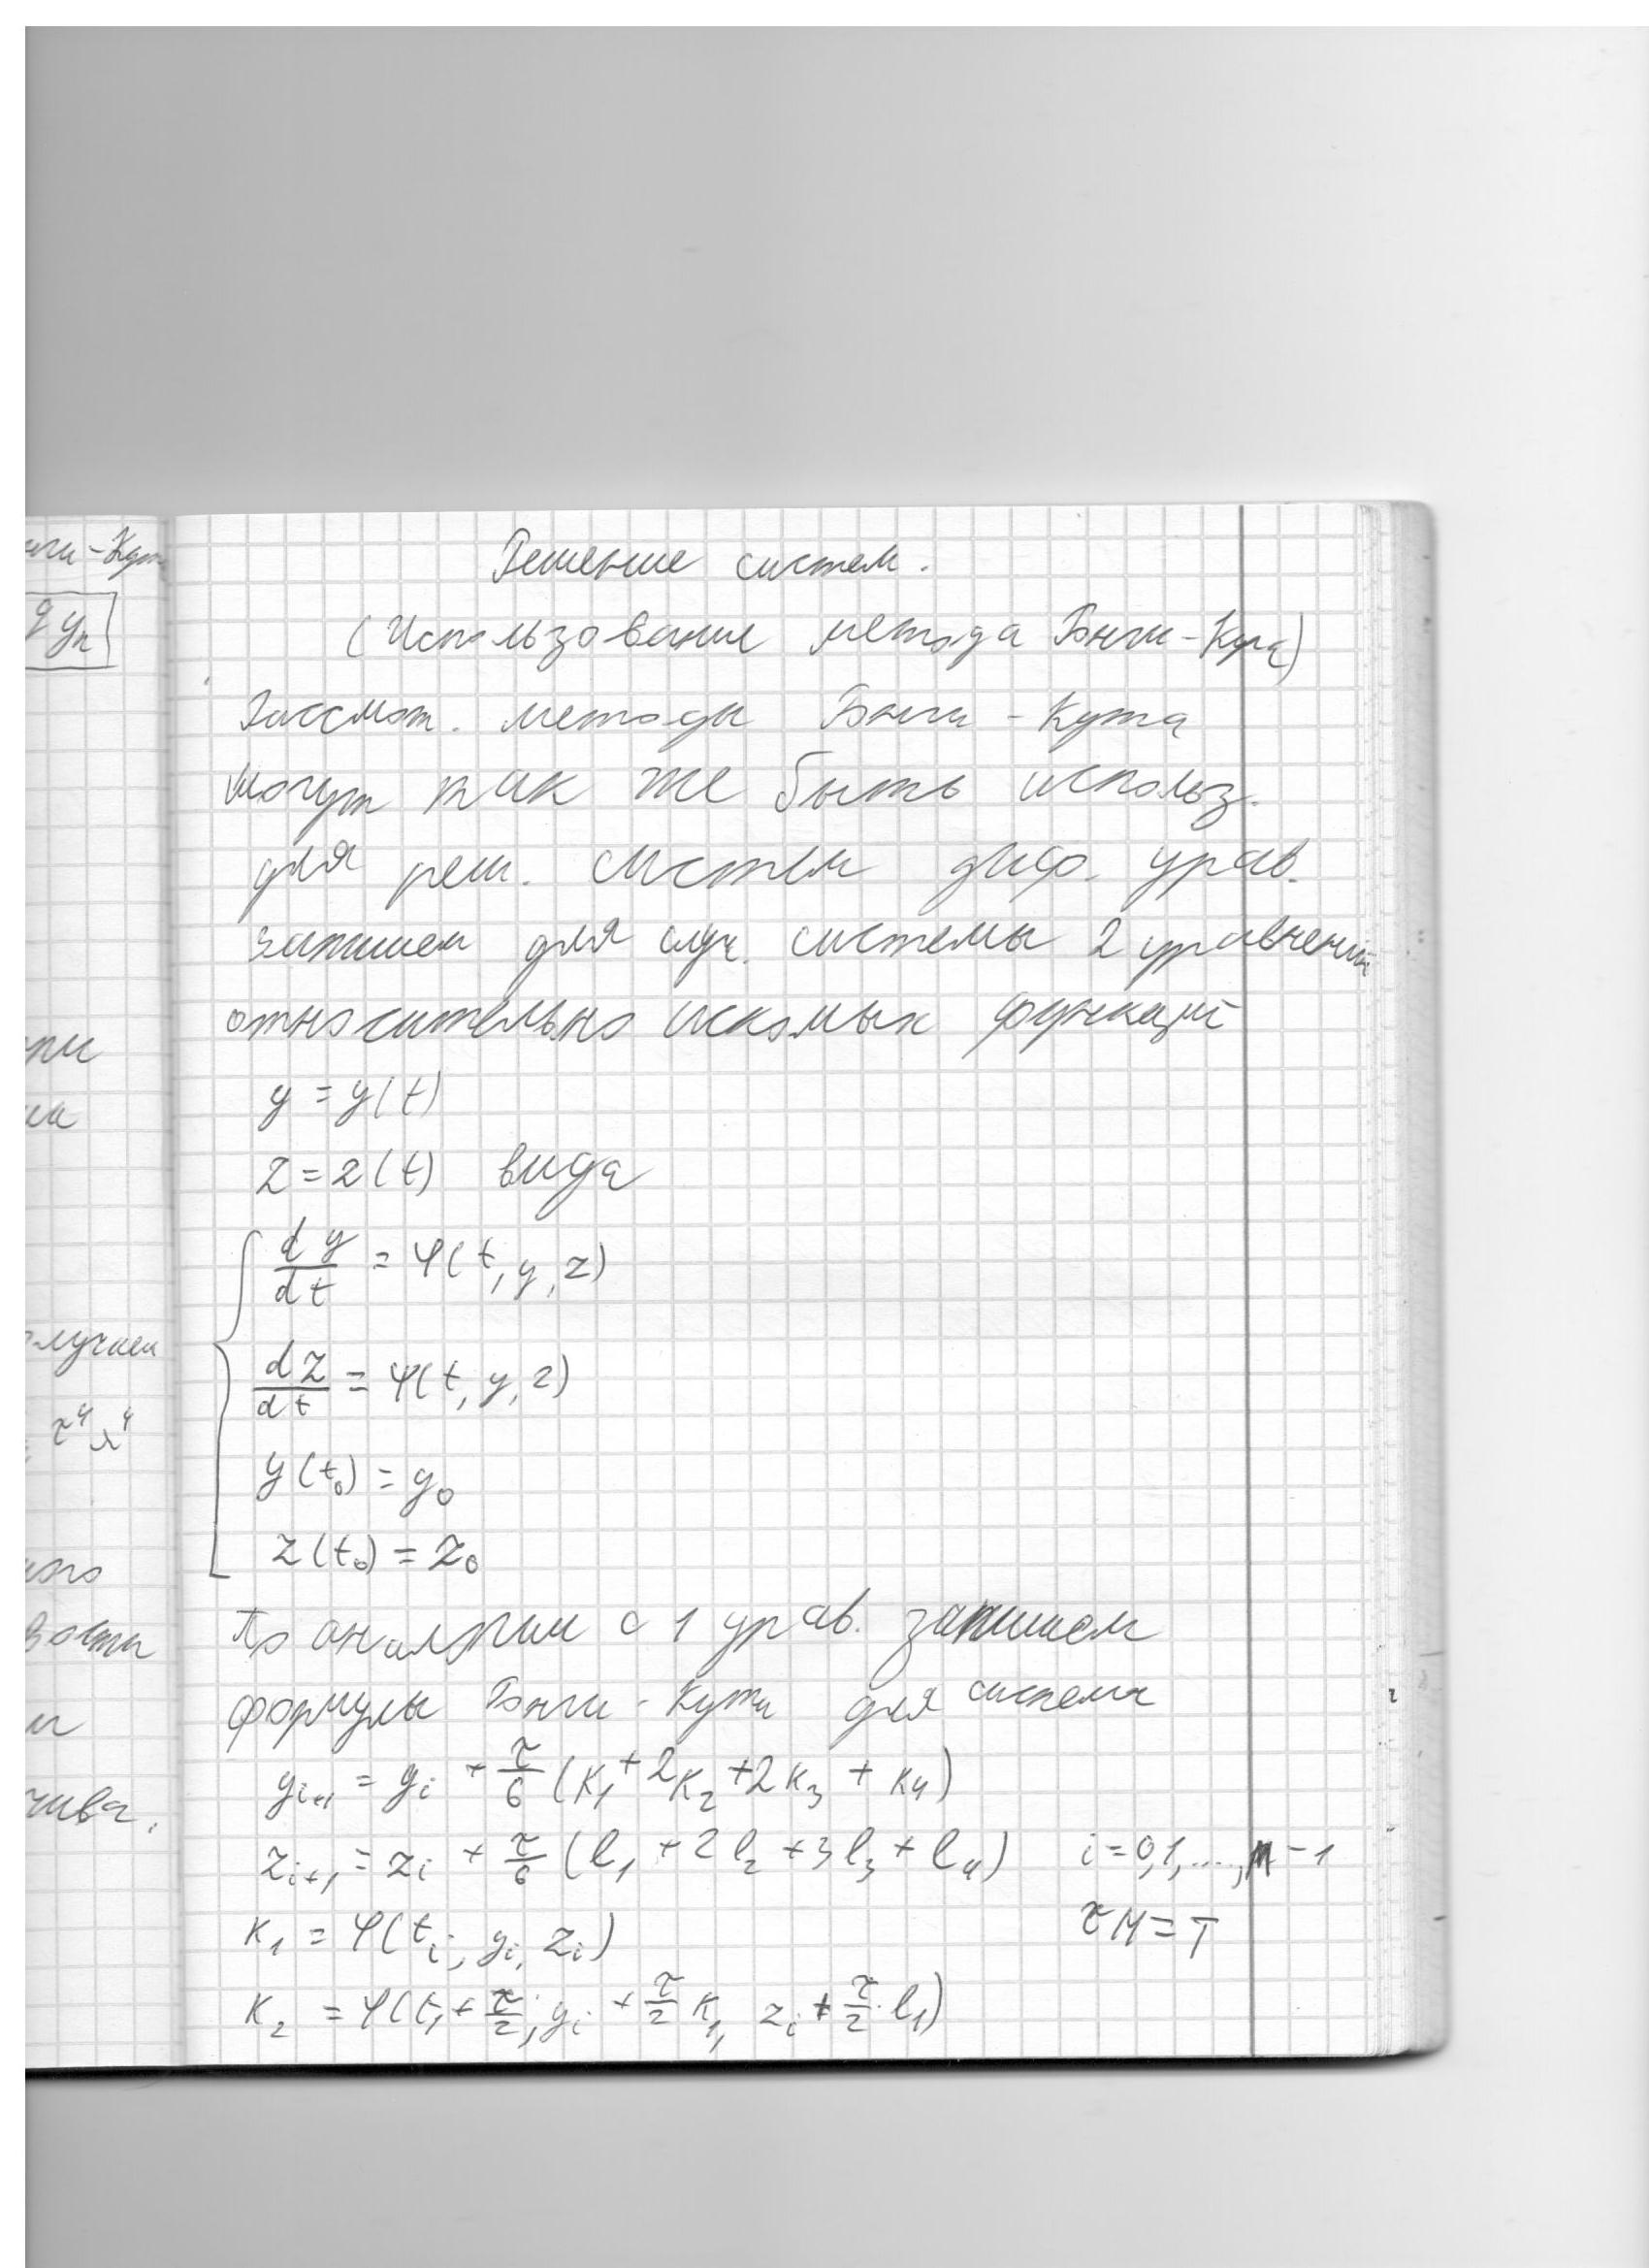 Решение систем.
(Использование метода Рунги-Кута)
Рассмот. методы Рунги-Кута
могут так же быть использ.
для реш. систем диф. урав.
запишем для случ. системы 2 уравнений
относительно искомых функций
y = y(t)
z = z(t) вида
dy/dt = φ(t, y, z)
dz/dt = ψ(t, y, z)
y(t₀) = y₀
z(t₀) = z₀
По аналогии с 1 урав. запишем
формулы Рунги-Кути для системы
yᵢ₊₁ = yᵢ + τ/6 (K₁ + 2K₂ + 2K₃ + K₄)
zᵢ₊₁ = zᵢ + τ/6 (l₁ + 2l₂ + 3l₃ + l₄) i = 0,1,...,M-1
K₁ = φ(tᵢ; yᵢ, zᵢ) τM = T
K₂ = φ(tᵢ + τ/2; yᵢ + τ/2 K₁, zᵢ + τ/2·l₁)